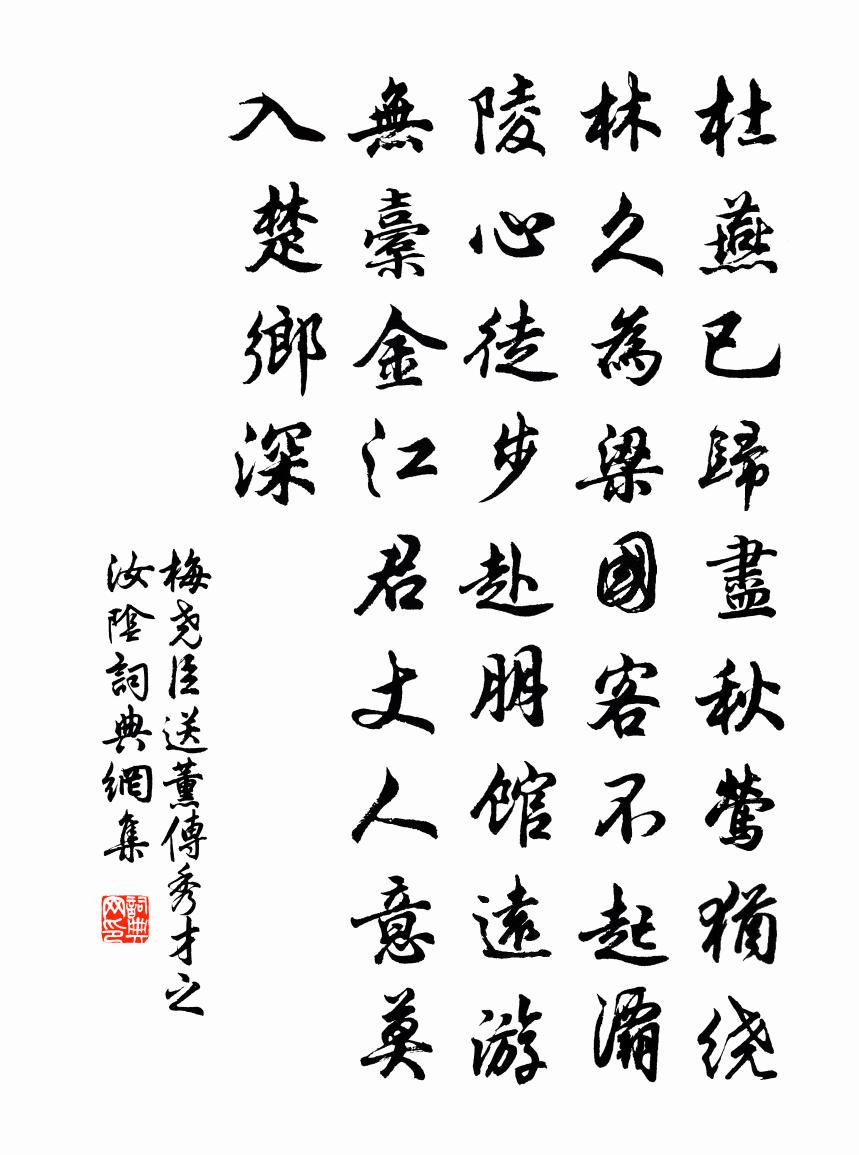 杜燕已歸盡秋鶯猶绕
林久為梁國客不起灞
陵心徒步赴朋館遠游
無橐金江君丈人意莫
入楚鄉深
梅尧臣送薰傳秀才之
汝陰詞典網集
詞典
网印